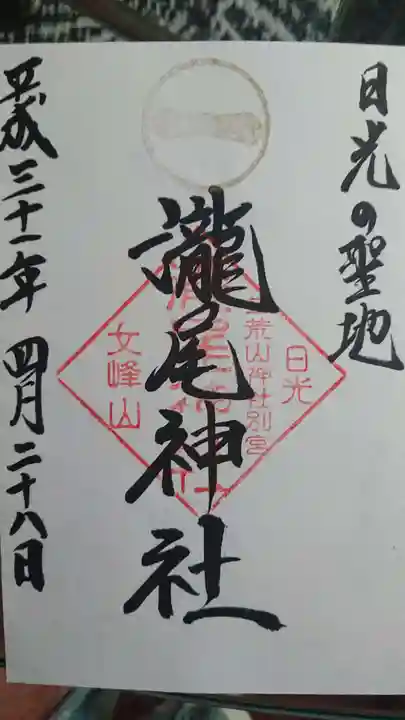 日光の聖地
瀧尾神社
平成三十一年 四月二十八日
日光
二荒山神社別宮
女峰山